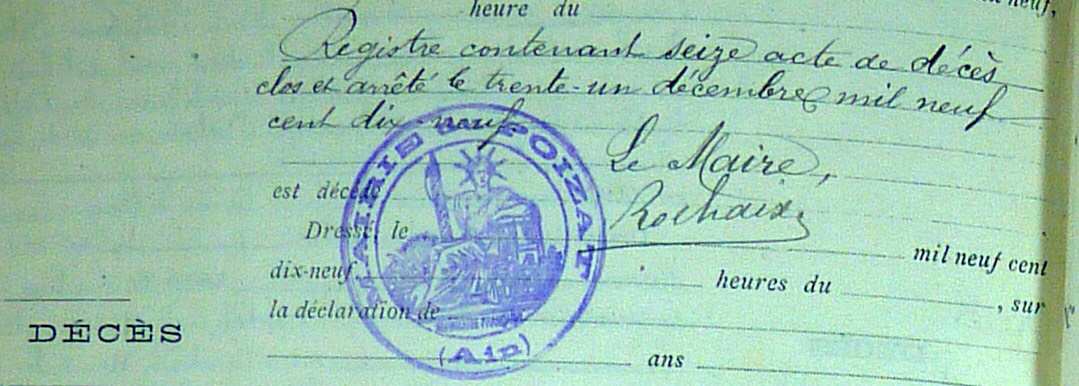 heure du
neuf,
Registre contenant seize acte de décès
clos et arrêté le trente-un décembre mil neuf
cent dix-neuf
Le Maire,
Rochaix
MAIRIE DU POIZAT
(Ain)
est décédé
Dressé le
mil neuf cent
dix-neuf,
heures du
, sur
la déclaration de
DÉCÈS
ans